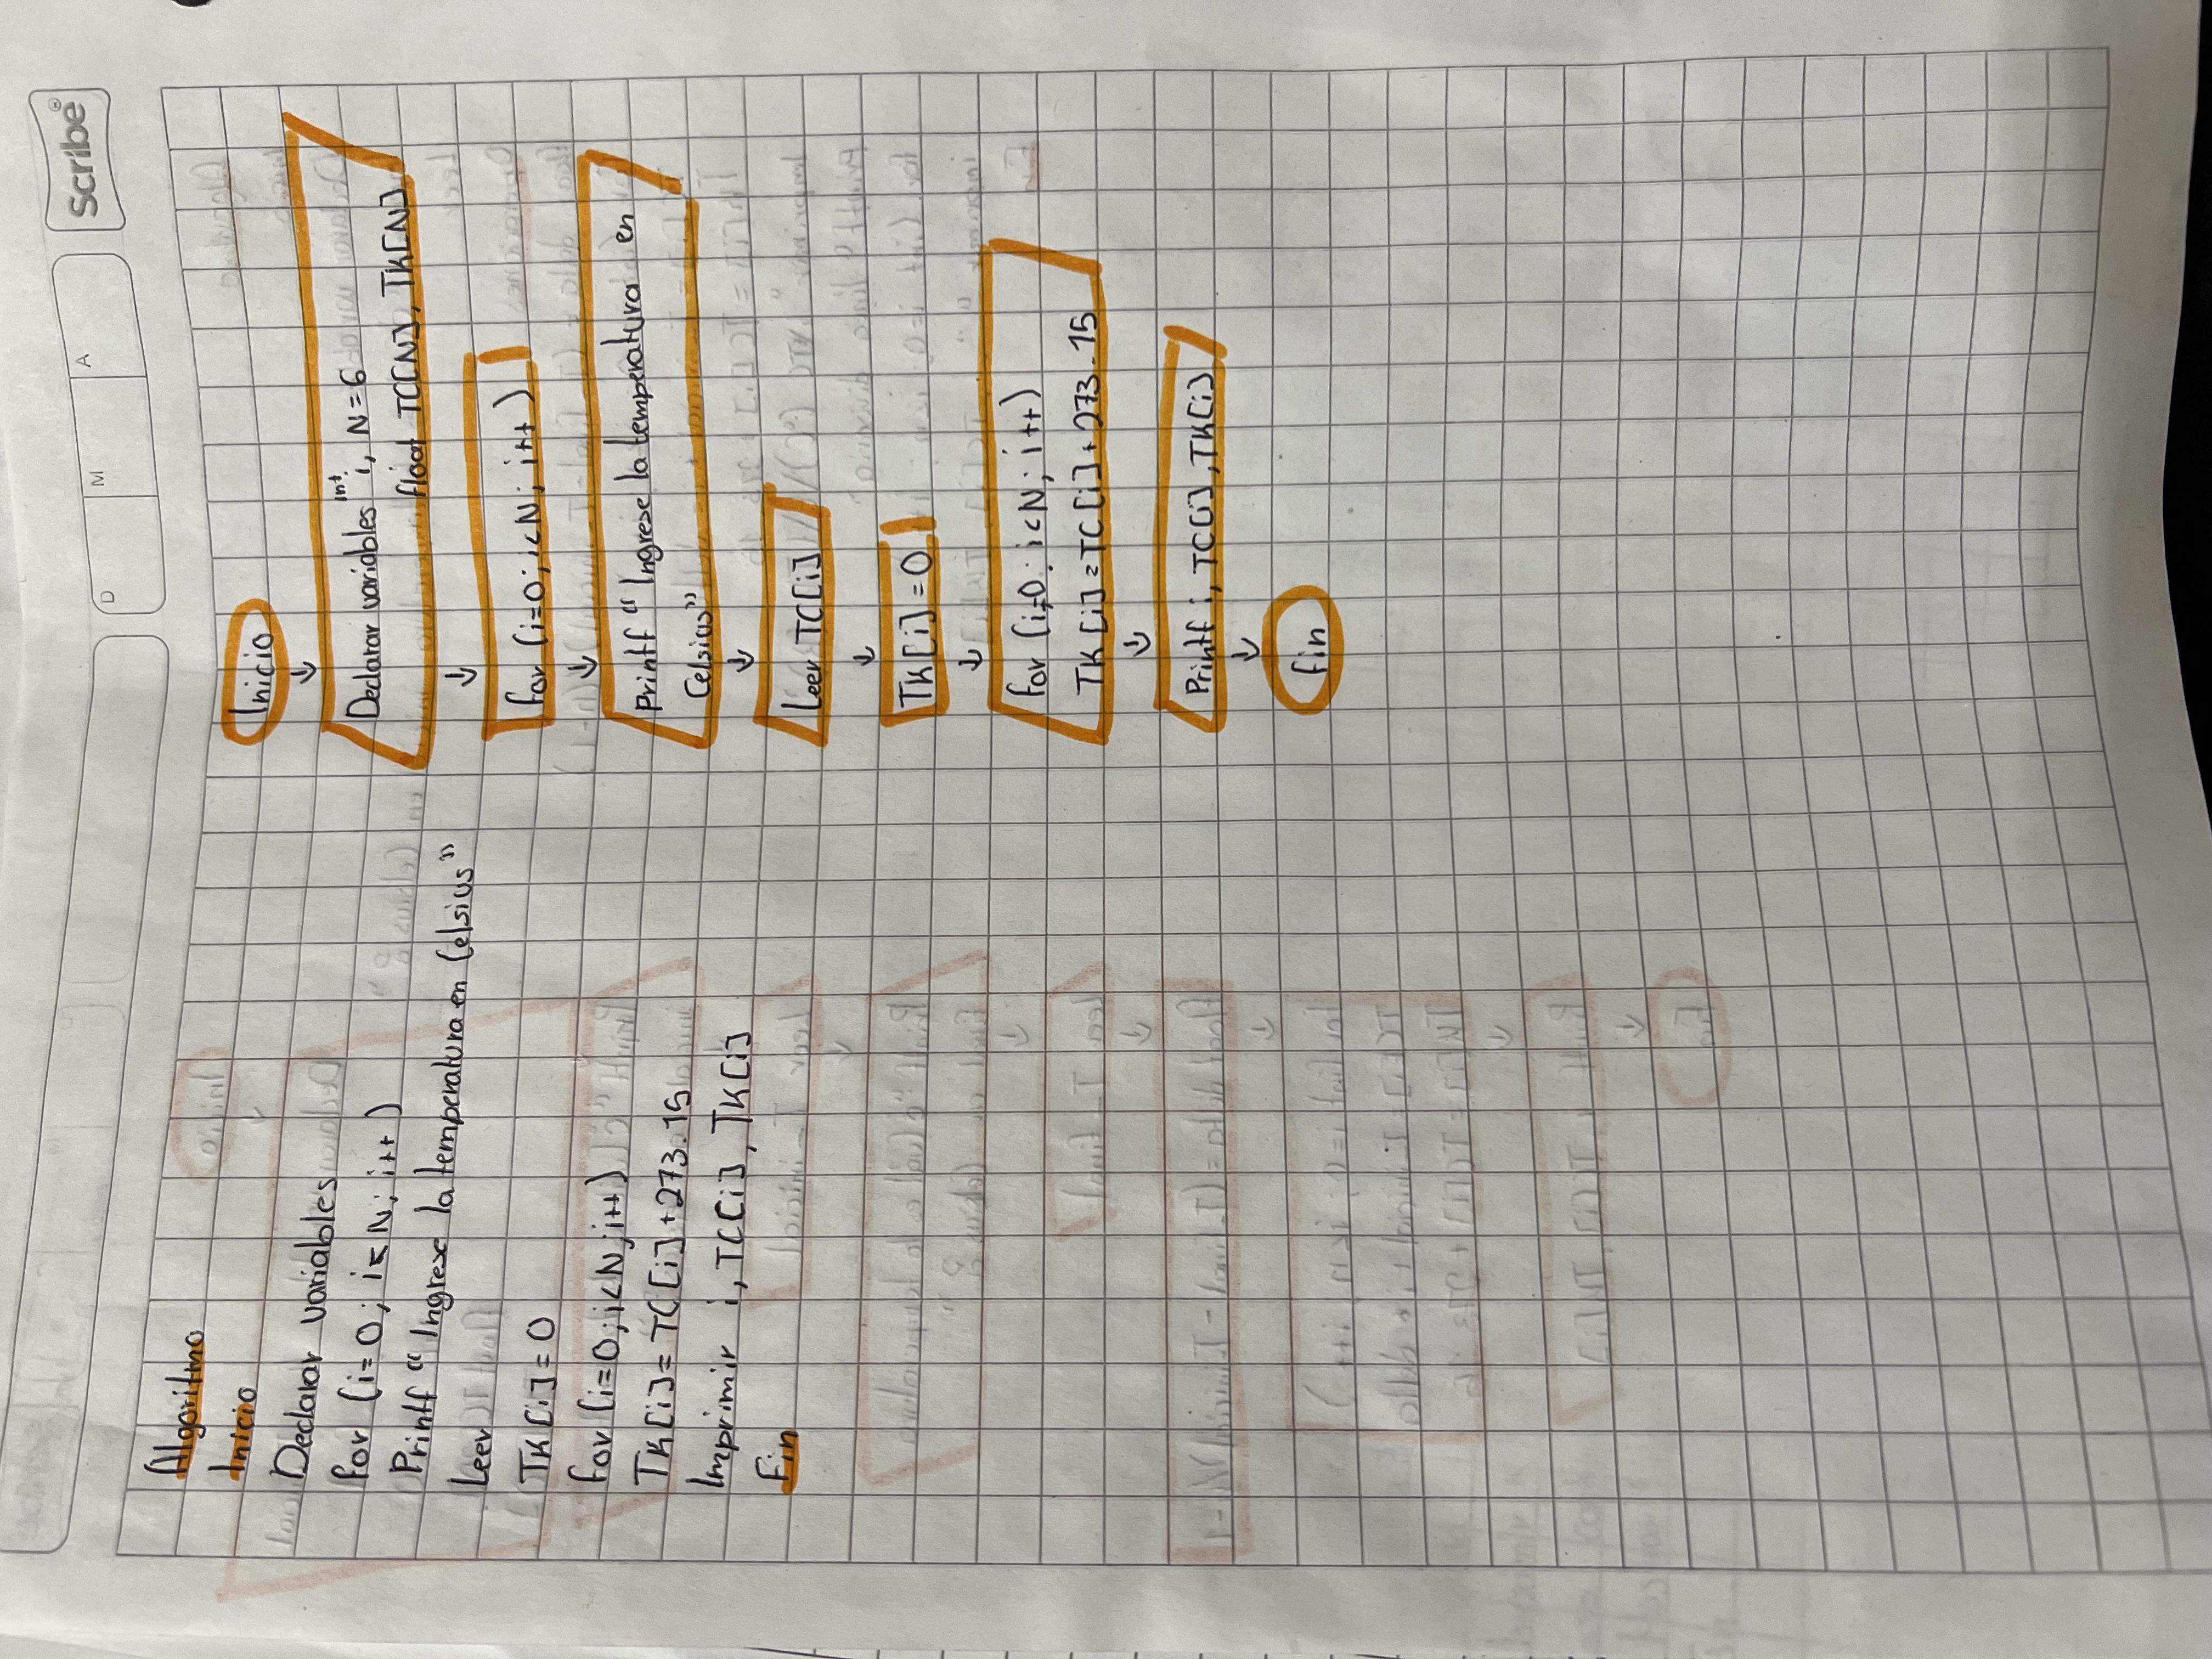 Scribe®
D M A
Algoritmo
Inicio
Declarar variables
for (i=0; i<N; i++)
Printf “Ingrese la temperatura en Celsius”
Leer
TK[i]=0
for (i=0; i<N; i++)
TK[i]=TC[i]+273.15
Imprimir i, TC[i], TK[i]
Fin
Inicio
↓
Declarar variables int i, N=6
float TC[N], TK[N]
↓
for (i=0; i<N; i++)
↓
printf “Ingrese la temperatura en
Celsius”
↓
Leer TC[i]
↓
TK[i]=0
↓
for (i=0; i<N; i++)
TK[i]=TC[i]+273.15
↓
Printf i, TC[i], TK[i]
↓
fin